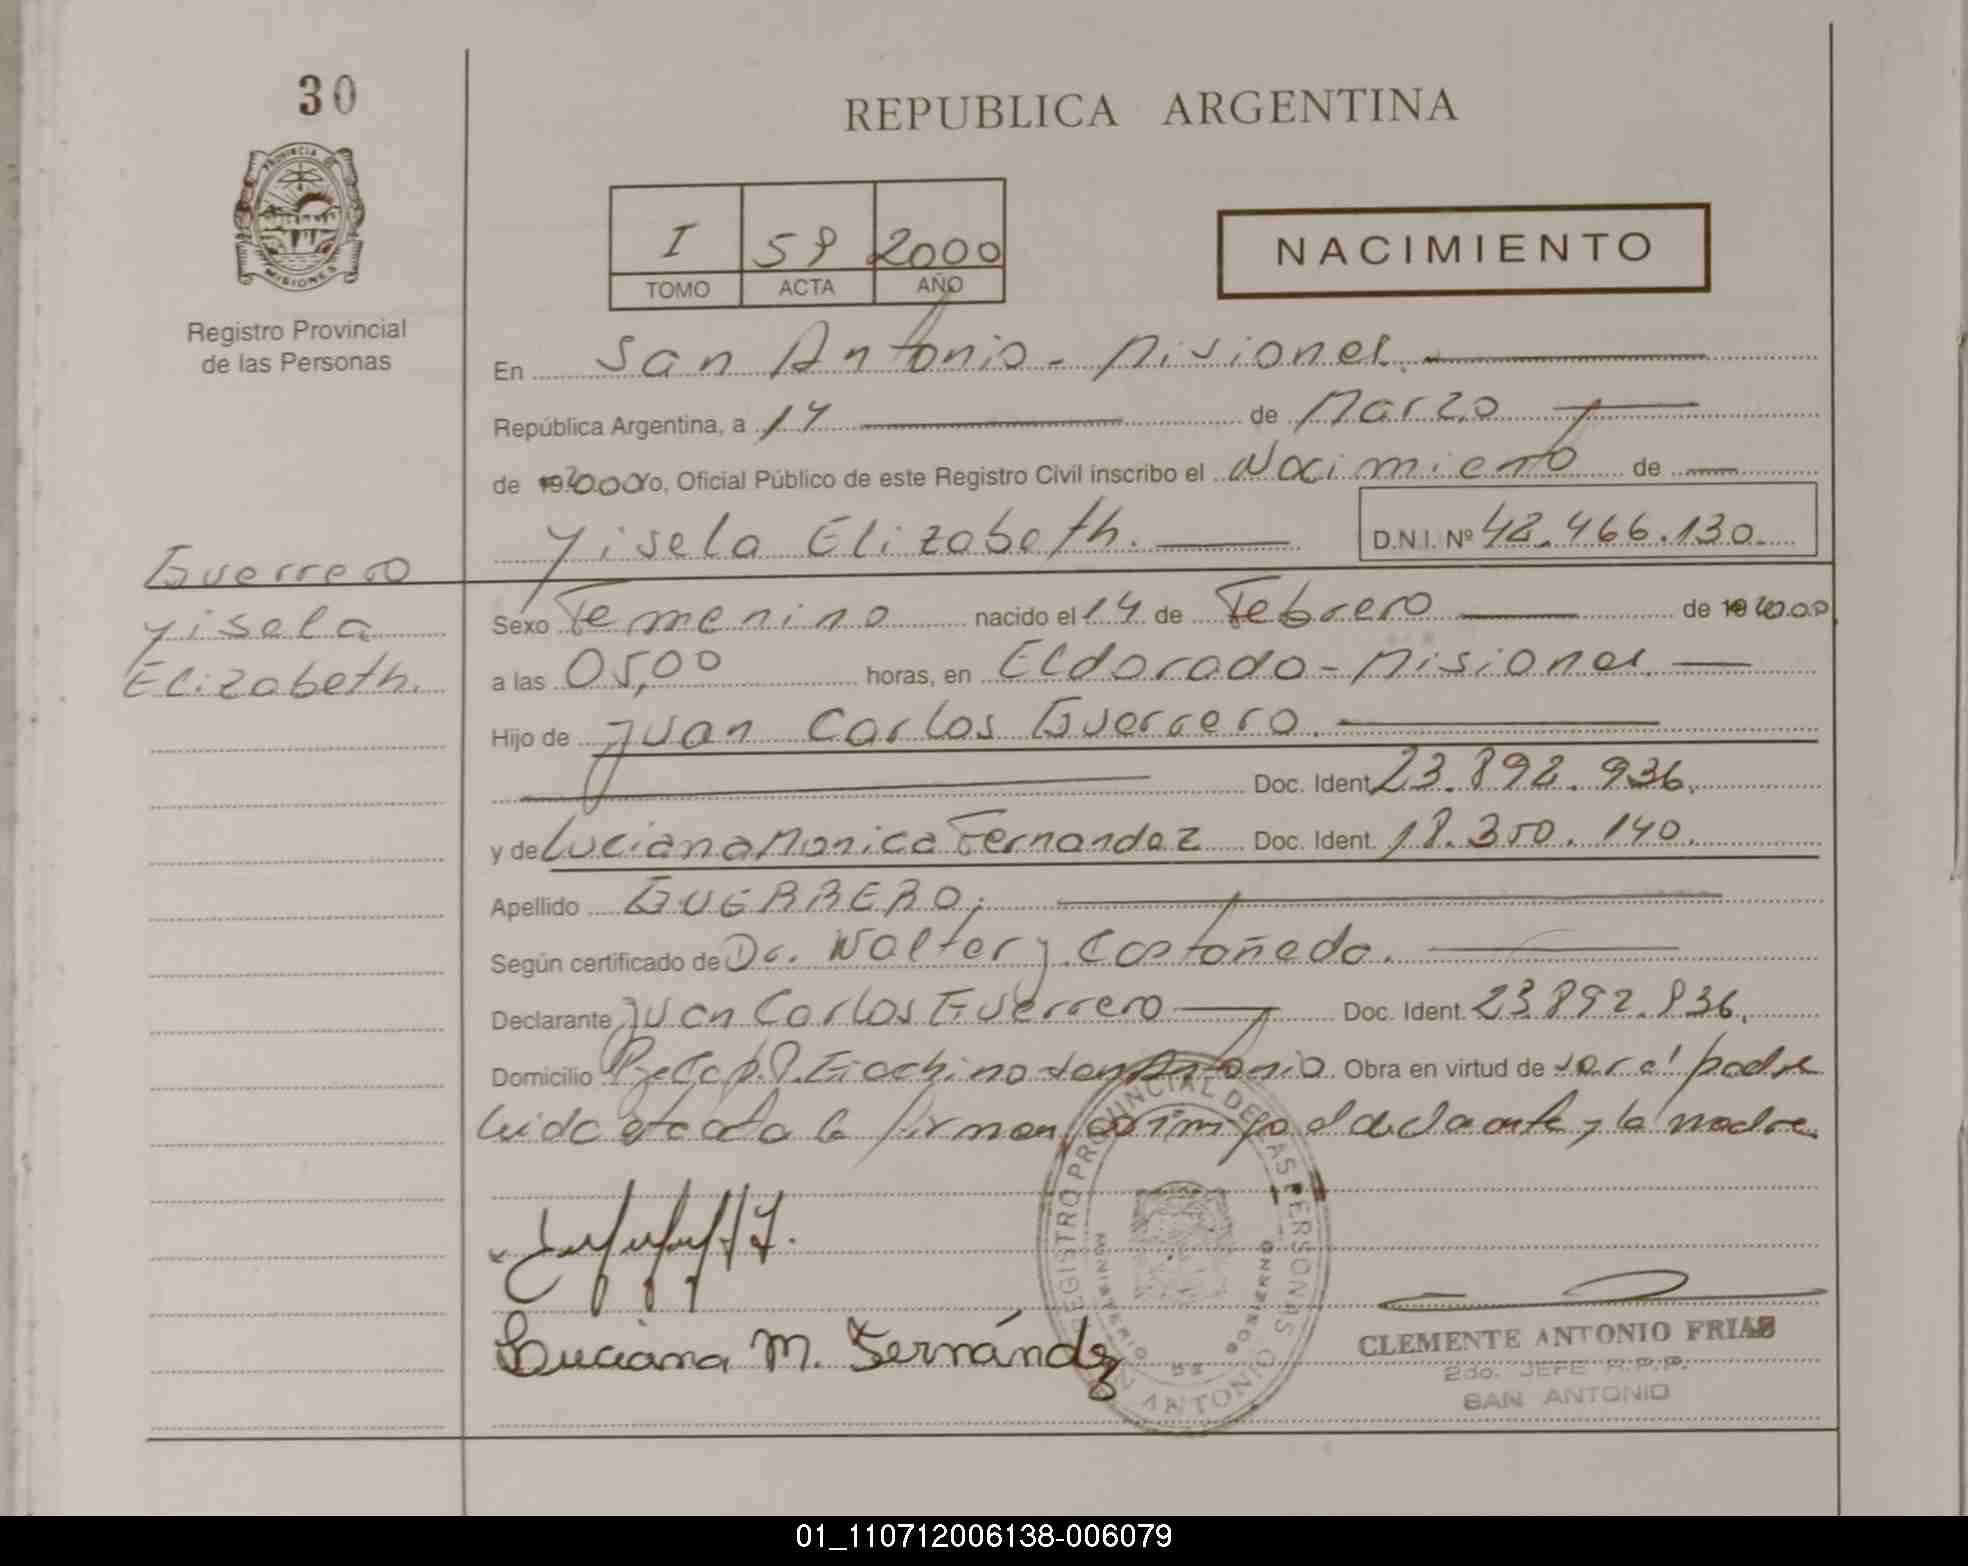 30
REPUBLICA ARGENTINA
PROVINCIA DE
MISIONES
Registro Provincial
de las Personas
I 59 2000
TOMO ACTA AÑO
NACIMIENTO
En San Antonio - Misiones.
República Argentina, a 14 de Marzo
de 2000 Yo, Oficial Público de este Registro Civil inscribo el Nacimiento de
Yisela Elizabeth. D.N.I. Nº 42.466.130.
Guerrero
Yisela
Elizabeth.
Sexo Femenino nacido el 14 de Febrero de 2000
a las 05,00 horas, en Eldorado - Misiones
Hijo de Juan Carlos Guerrero.
Doc. Ident. 23.892.936.
y de Luciana Monica Fernandez Doc. Ident. 18.350.140.
Apellido GUERRERO.
Según certificado de Dr. Walter J. Castañeda.
Declarante Juan Carlos Guerrero Doc. Ident. 23.892.936.
Domicilio San Antonio Obra en virtud de ser el padre
Leida el acta la firman conmigo el declarante y la madre
REGISTRO PROVINCIAL DE LAS PERSONAS
MINISTERIO DE GOBIERNO
SAN ANTONIO
Luciana M. Fernández
CLEMENTE ANTONIO FRIAS
2do. JEFE R.P.P.
SAN ANTONIO
01_110712006138-006079